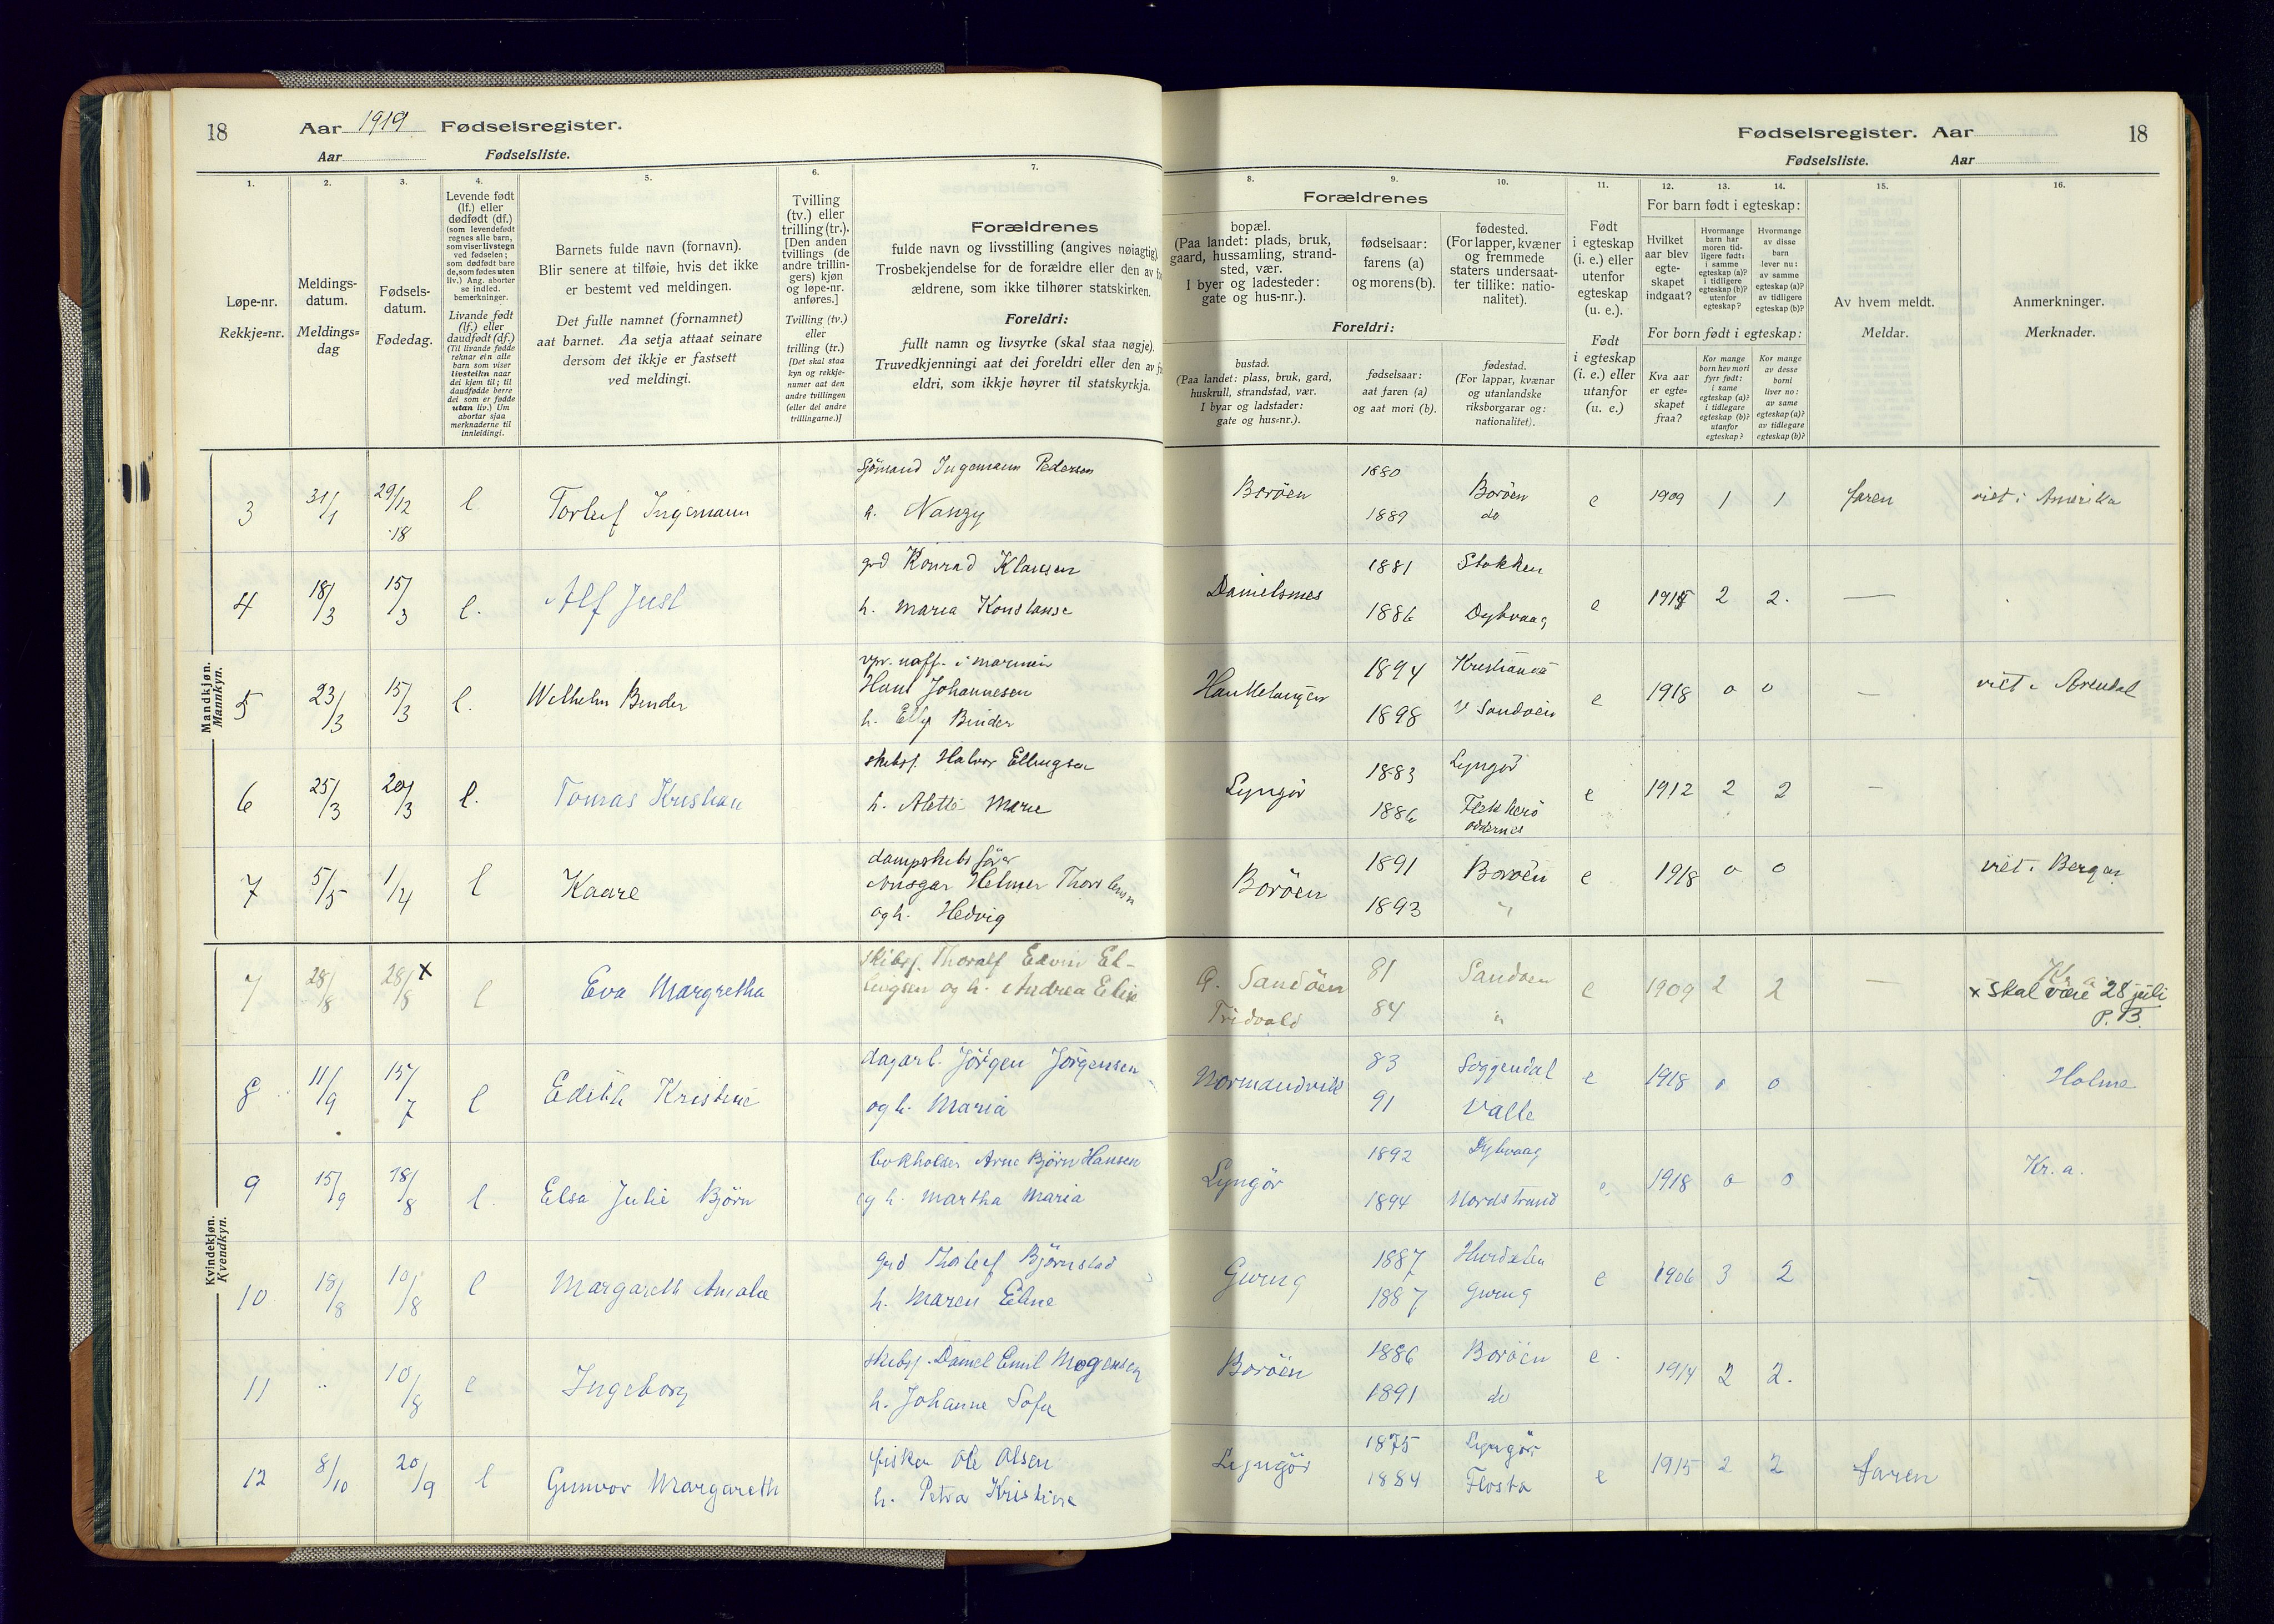 18
Aar 1919 Fødselsregister.
Aar Fødselsliste.
1.
2.
3.
4.
5.
6.
7.
Løpe-nr.
Rekkje=nr.
Meldings-
datum.
Meldings=
dag
Fødsels-
datum.
Fødedag.
Levende født
(lf.) eller
dødfødt (df.)
(som levendefødt
regnes alle barn,
som viser livstegn
ved fødselen;
som dødfødt bare
de, som fødes uten
liv.) Ang. aborter
se indled.
bemerkninger.
Livande født
(lf.) eller
daudfødt (df.)
(Til livande fødde
reknar ein alle
barn som viser
livsteikn naar
dei kjem til; til
daudfødde berre
dei som er fødde
utan liv.) Um
abortar sjaa
merknaderne til
innleidingi.
Barnets fulde navn (fornavn).
Blir senere at tilføie, hvis det ikke
er bestemt ved meldingen.
Det fulle namnet (fornamnet)
aat barnet. Aa setja attaat seinare
dersom det ikkje er fastsett
ved meldingi.
Tvilling
(tv.) eller
trilling (tr.).
[Den anden
tvillings (de
andre trillin-
gers) kjøn
og løpe-nr.
anføres.]
Tvilling (tv.)
eller
trilling (tr.)
[Det skal staa
kyn og rekkje-
numer aat den
andre tvillingen
(eller dei andre
trillingarne.)]
Forældrenes
fulde navn og livsstilling (angives nøiagtig).
Trosbekjendelse for de forældre eller den av
ældrene, som ikke tilhører statskirken.
Foreldri:
fullt namn og livsyrke (skal staa nøgje).
Truvedkjenningi aat dei foreldri eller den av
eldri, som ikkje høyrer til statskyrkja.
Mandkjøn.
Mannkyn.
3 31/1 29/12 18 l Torleif Ingemann
Sjømand Ingemann Pedersen
h. Nanzy
4 18/3 15/3 l. Alf Just
grd Konrad Klausen
h. Maria Konstanse
5 23/3 15/3 l. Wilhelm Binder
Hans Johannesen
h. Elly Binder
6 25/3 20/3 l. Tomas Kristian
skibsf. Halvor Ellingsen
h. Alette Marie
7 5/5 1/4 l Kaare
dampskibsfører
Ansgar Helmer
og h. Hedvig
Kvindekjøn.
Kvendkyn.
7 28/8 28/8 x l Eva Margretha
skibsf. Thoralf Edvin El-
lingsen og h. Andrea Elise
8 11/9 15/7 l Edith Kristine
dagarb. Jörgen Jörgensen
og h. Maria
9 15/9 18/8 l. Elsa Julie Bjørn
bokholder Arne Bjørn Hansen
og h. Martha Maria
10 18/8 10/8 l Margareth Amalie
grd Thorleif Björnstad
h. Maren Eline
11 " 10/8 l Ingeborg
skibsf. Daniel Emil Mogensen
h. Johanne Sofie
12 8/10 20/9 l Gunvor Margareth
fisker Ole Olsen
h. Petra Kristine
Fødselsregister. Aar 18
Fødselsliste. Aar
8.
9.
10.
11.
12.
13.
14.
15.
16.
Forældrenes
bopæl.
(Paa landet: plads, bruk,
gaard, hussamling, strand-
sted, vær.
I byer og ladesteder:
gate og hus-nr.).
fødselsaar:
farens (a)
og morens (b).
fødested.
(For lapper, kvæner
og fremmede
staters undersaat-
ter tillike: natio-
nalitet).
Foreldri:
bustad.
(Paa landet: plass, bruk, gard,
huskrull, strandstad, vær.
I byar og ladstader:
gate og hus=nr.).
fødselsaar:
aat faren (a)
og aat mori (b).
fødestad.
(For lappar, kvænar
og utanlandske
riksborgarar og:
nationalitet).
Født
i egteskap
(i. e.) eller
utenfor
egteskap
(u. e.).
Født
i egteskap
(i. e.) eller
utanfor
(u. e.)
For barn født i egteskap:
Hvilket
aar blev
egte-
skapet
indgaat?
Hvormange
barn har
moren tid-
ligere født:
i samme
egteskap (a)?
i tidligere
egteskap (b)?
utenfor
egteskap?
Hvormange
av disse
barn
lever nu:
av samme
egteskap (a)?
av tidligere
egteskap (b)?
For born født i egteskap:
Kva aar
er egte=
skapet
fraa?
Kor mange
born hev mori
fyrr født:
i same
egteskap (a)?
i tidlegare
egteskap (b)?
utanfor
egteskap?
Kor mange
av desse
borni
liver no:
av same
egteskap (a)?
av tidlegare
egteskap (b)?
Av hvem meldt.
Meldar.
Anmerkninger.
Merknader.
Borøen 1880 Borøen e 1909 1 1 faren viet i Amerika
1889 do
Danielsnes 1881 Stokken e 2 2. —
1886 Dybvaag
1894 e 1918 0 0 — viet i Arendal
1898 V Sandøen
Lyngör 1883 Lyngör e 1912 2 2 —
1886
Oddernes
Borøen 1891 Borøen e 1918 0 0 viet i Bergen
1893 "
Sandöen 81 Sandøen e 1909 2 2 — Kr. a
84 " x skal være 28 juli
P.B.
83 Soggendal e 1918 0 0 Holme
91 Valle
Lyngör 1892 Dybvaag e. 1918 0 0 Kr. a.
1894 Nordstrand
Gurng 1887 e 1906 3 2
1887 Gurng
Borøen 1886 Borøen e. 1914 2 2.
1891 do
Lyngör 1875 Lyngör e 1915 2 2 faren
1884 Flosta